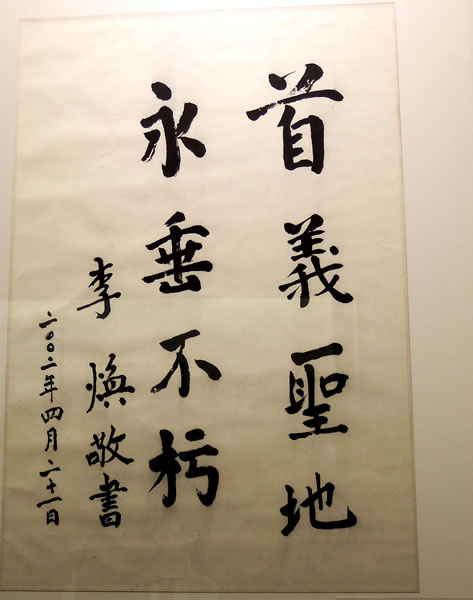 首義聖地
永垂不朽
李煥敬書
二〇〇二年四月二十一日